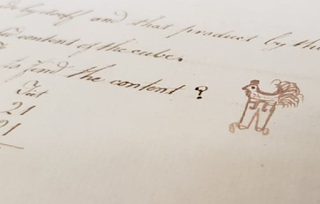 by itself and that product by the
content of the cube.
to find the content ?
Feet
21
21